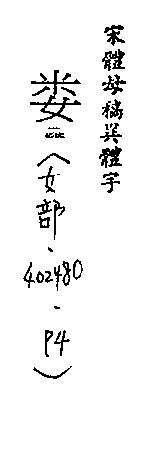 宋體母稿異體字
娄
（女部－402480－P4）